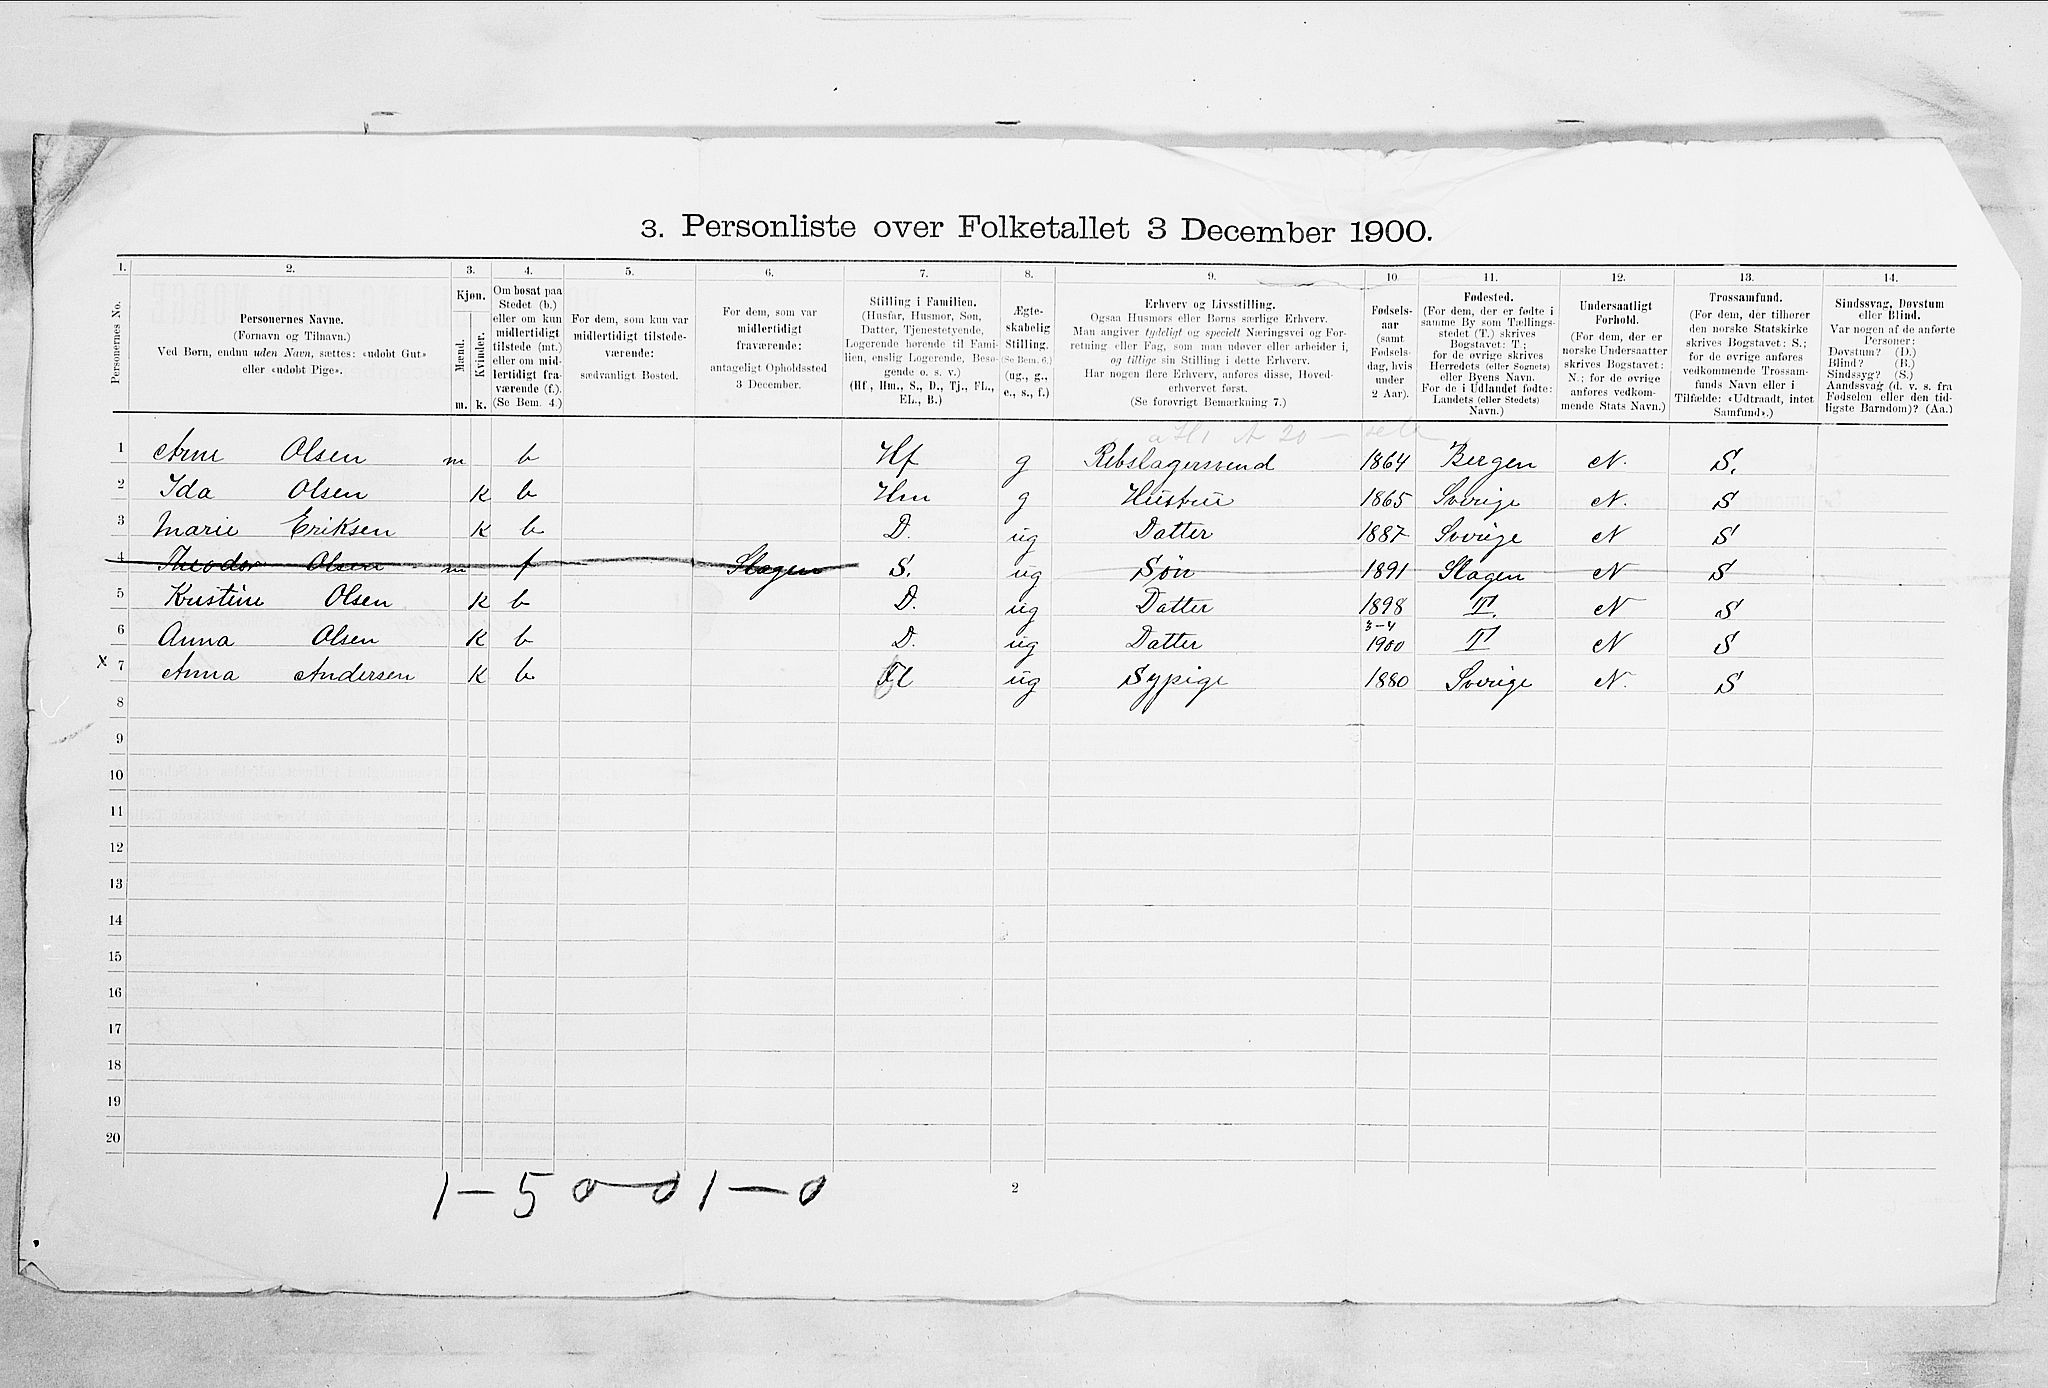 3. Personliste over Folketallet 3 December 1900.
1. 2. 3. 4. 5. 6. 7. 8. 9. 10 11. 12. 13. 14.
Personernes No.
Personernes Navne.
(Fornavn og Tilnavn.)
Ved Børn, endnu uden Navn, sættes: «udøbt Gut»
eller «udøbt Pige».
Kjøn.
Mænd. Kvinder.
m. k.
Om bosat paa
Stedet (b.)
eller om kun
midlertidigt
tilstede (mt.)
eller om mid-
lertidigt fra-
værende (f.).
(Se Bem. 4.)
For dem, som kun var
midlertidigt tilstede-
værende:
sædvanligt Bosted.
For dem, som var
midlertidigt
fraværende:
antageligt Opholdssted
3 December.
Stilling i Familien.
(Husfar, Husmor, Søn,
Datter, Tjenestetyende,
Logerende hørende til Fami-
lien, enslig Logerende, Besø-
gende o. s. v.)
(Hf., Hm., S., D., Tj., FL.,
EL., B.)
Ægte-
skabelig
Stilling.
(Se Bem. 6.)
(ug., g.,
e., s., f.)
Erhverv og Livsstilling.
Ogsaa Husmors eller Børns særlige Erhverv.
Man angiver tydeligt og specielt Næringsvei og For-
retning eller Fag, som man udøver eller arbeider i,
og tillige sin Stilling i dette Erhverv.
Har nogen flere Erhverv, anføres disse, Hoved-
erhvervet først.
(Se forøvrigt Bemærkning 7.)
Fødsels-
aar
(samt
Fødsels-
dag, hvis
under
2 Aar).
Fødested.
(For dem, der er fødte i
samme By som Tællings-
stedet (T.) skrives
Bogstavet: T.;
for de øvrige skrives
Herredets (eller Sognets)
eller Byens Navn.
For de i Udlandet fødte:
Landets (eller Stedets)
Navn.)
Undersaatligt
Forhold.
(For dem, der er
norske Undersaatter
skrives Bogstavet:
N.; for de øvrige
anføres vedkom-
mende Stats Navn.)
Trossamfund.
(For dem, der tilhører
den norske Statskirke
skrives Bogstavet: S.;
for de øvrige anføres
vedkommende Trossam-
funds Navn eller i
Tilfælde: «Udtraadt, intet
Samfund».)
Sindssvag, Døvstum
eller Blind.
Var nogen af de anførte
Personer:
Døvstum? (D.)
Blind? (B.)
Sindssyg? (S.)
Aandssvag (d. v. s. fra
Fødselen eller den tid-
ligste Barndom)? (Aa.)
1 Arne Olsen m b Hf g Rebslagersvend 1864 Bergen N. S.
2 Ida Olsen K b Hm g Hustru 1865 Sverige N. S
3 Marie Eriksen K b D. ug Datter 1887 Sverige N S
4 Theodor Olsen m f Slagen S. ug Søn 1891 Slagen N S
5 Kristine Olsen K b D. ug Datter 1898 T. N S
6 Anna Olsen K b D. ug Datter 3-4 1900 T N S
x 7 Anna Andersen K b Fl ug Sypige 1880 Sverige N. S
8
9
10
11
12
13
14
15
16
17
18
19
20
1-5 0-0 1-0
2